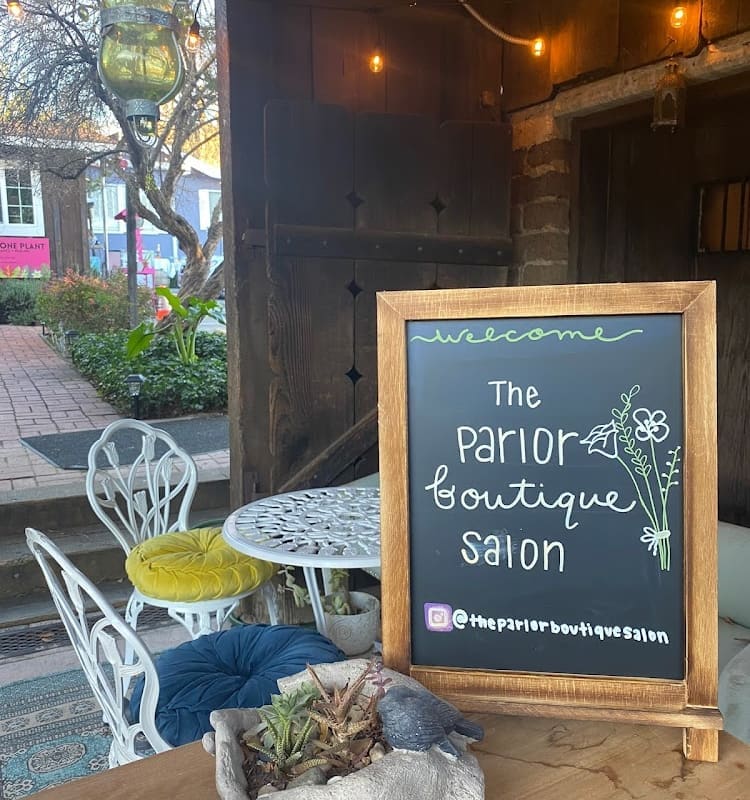 ONE PLANT
welcome
The
Parlor
boutique
salon
@theparlorboutiquesalon